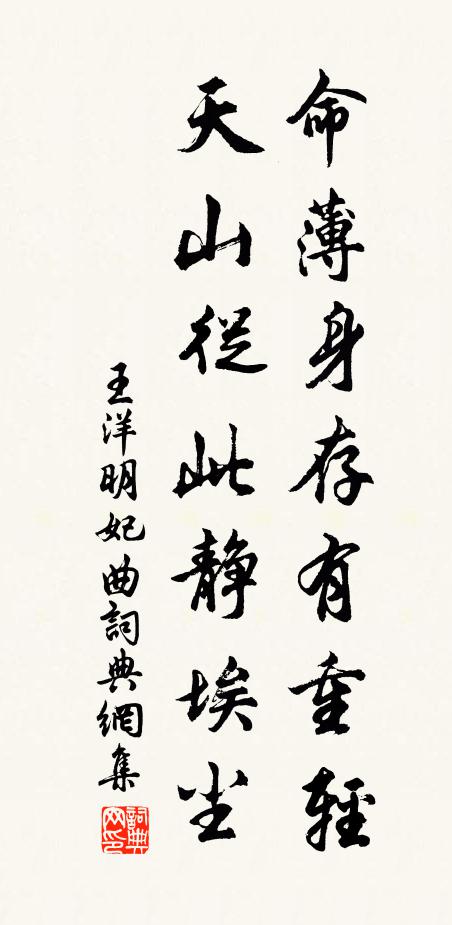 命薄身存有重輕
天山從此靜埃尘
王洋明妃曲詞典網集
詞典网印